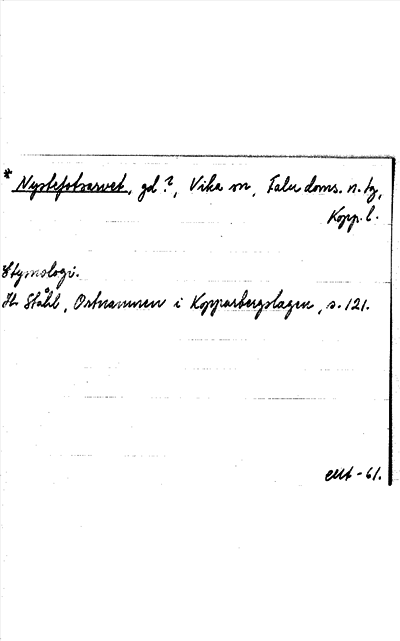 * Nystefotsarvet, gd?, Vika sn, Falu doms. n. tg,
Kopp. l.
Etymologi.
H. Ståhl, Ortnamnen i Kopparbergslagen, s. 121.
-61.